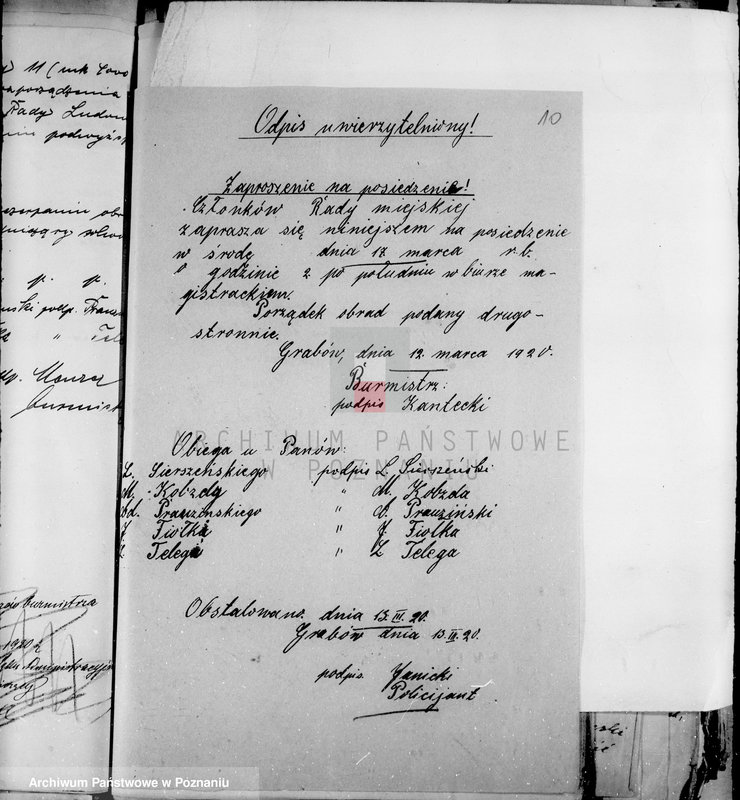 11 (mk
Rady Ludow
Odpis uwierzytelniony!
10
Zaproszenie na posiedzenie!
Członków Rady miejskiej
zaprasza się niniejszem na posiedzenie
w środę dnia 17 marca r.b.
o godzinie 2 po południu w biurze ma-
gistrackiem.
Porządek obrad podany drugo-
stronnie.
Grabów, dnia 12. marca 1920.
Burmistrz:
podpis Kantecki
Obiega u Panów:
L. Sierszeńskiego podpis L. Sierszeński
M. Kobzdy " M. Kobzda
Prauzińskiego " Prauziński
J Fiołka " J. Fiolka
Telega " Z Telega
Obstalowano dnia 13. III. 20.
Grabów dnia 13. III. 20.
podpis. Janicki
Policijant
burmistrza
ARCHIWUM PAŃSTWOWE
W POZNANIU
Archiwum Państwowe w Poznaniu